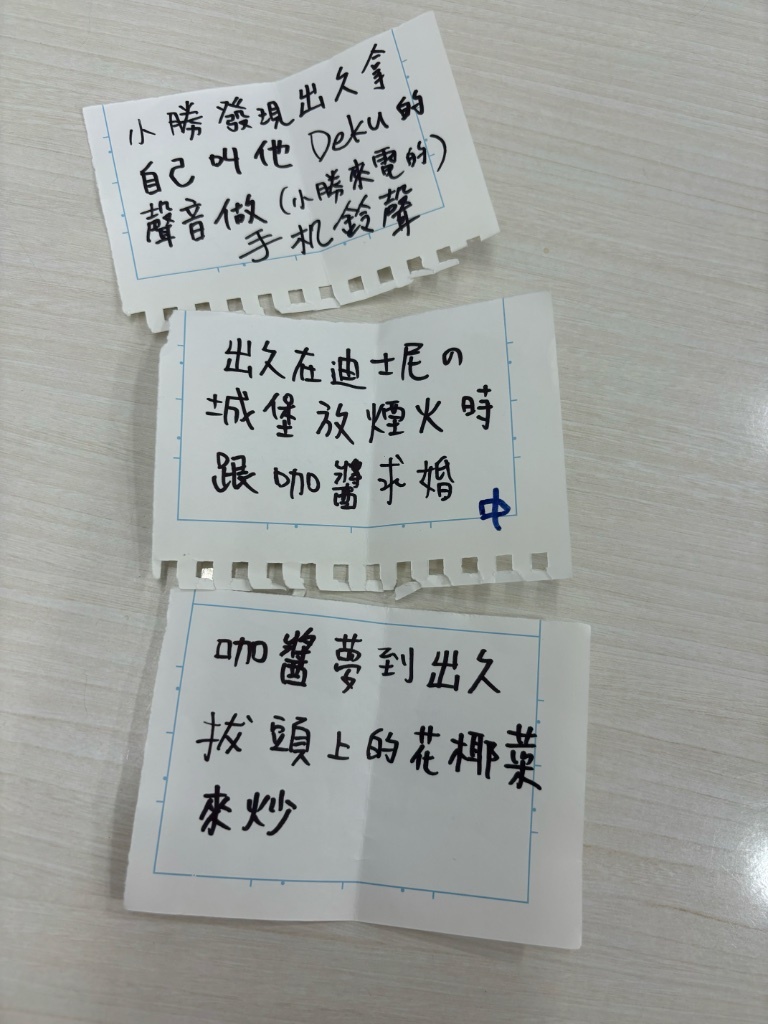 小勝發現出久拿
自己叫他 Deku的
聲音做(小勝來電的)
手机鈴聲
出久在迪士尼の
城堡放煙火時
跟咖醬求婚
中
咖醬夢到出久
拔頭上的花椰菜
來炒